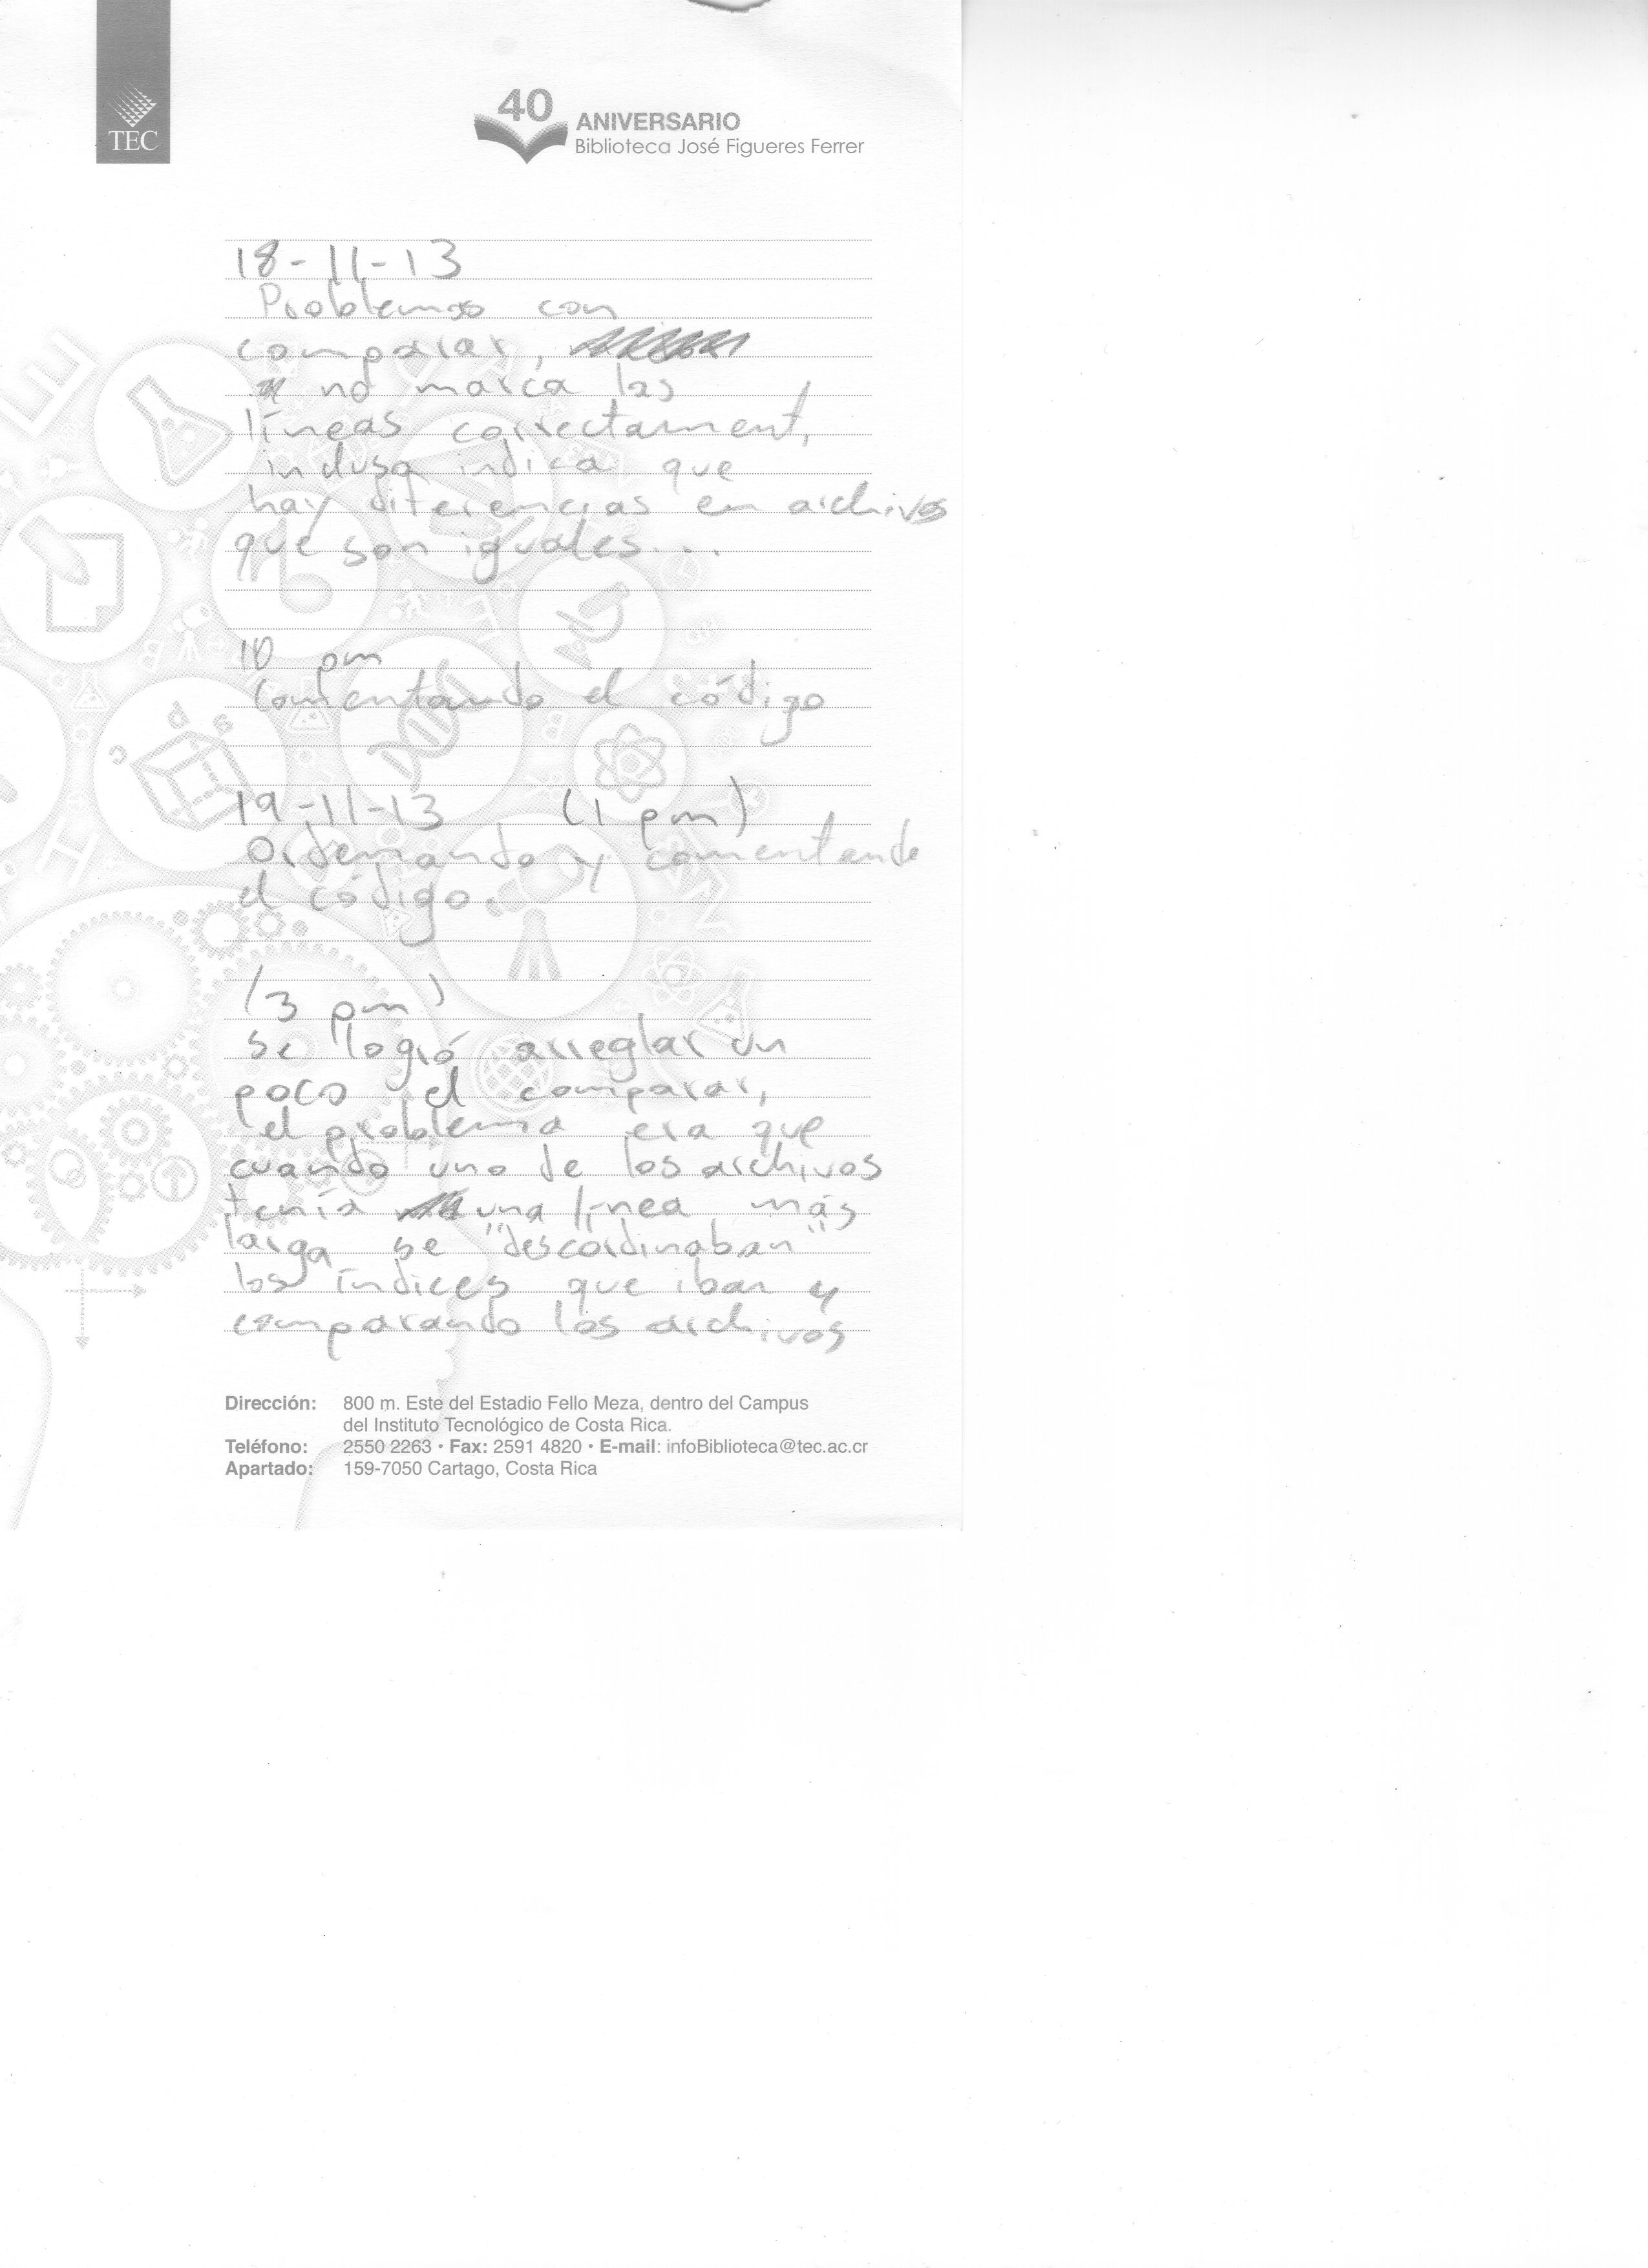 TEC
40
ANIVERSARIO
Biblioteca José Figueres Ferrer
18-11-13
Problemas con
comparar,
no marca las
líneas correctament,
inclusa indica que
hay diferencias en archivos
que son iguales...
10 pm
Comentando el código
19-11-13 (1 pm)
Ordenando y comentando
el código.
(3 pm)
se logró arreglar un
poco el comparar,
el problema era que
cuando uno de los archivos
tenía una línea más
larga se "descordinaban"
los índices que iban
comparando los archivos
Dirección: 800 m. Este del Estadio Fello Meza, dentro del Campus
del Instituto Tecnológico de Costa Rica.
Teléfono: 2550 2263 • Fax: 2591 4820 • E-mail: infoBiblioteca@tec.ac.cr
Apartado: 159-7050 Cartago, Costa Rica